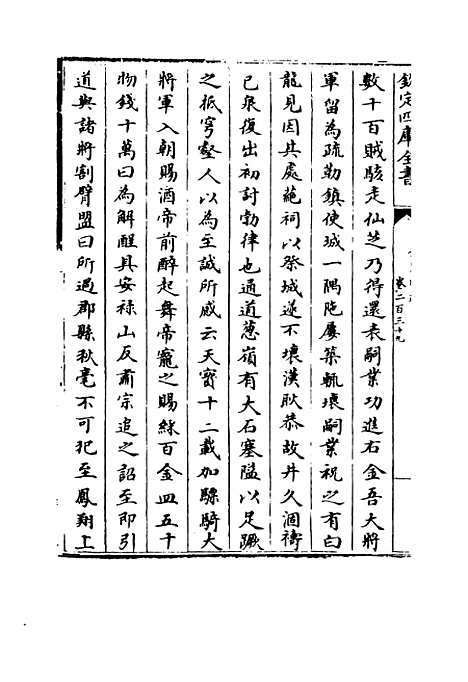 欽定四庫全書
卷二百三十九
數十百賊駭走仙芝乃得還表嗣業功進右金吾大將
軍留為疏勒鎮使城一隅陁屢築輒壞嗣業祝之有白
龍見因其處葩祠以祭城遂不壞漢耿恭故井久涸禱
已泉復出初討勃律也通道葱嶺有大石塞隘以足蹶
之抵穹壑人以為至誠所感云天寳十二載加驃騎大
將軍入朝賜酒帝前醉起舞帝寵之賜綵百金皿五十
物錢十萬曰為解酲具安禄山反肅宗追之詔至即引
道與諸將割臂盟曰所過郡縣秋毫不可犯至鳳翔上